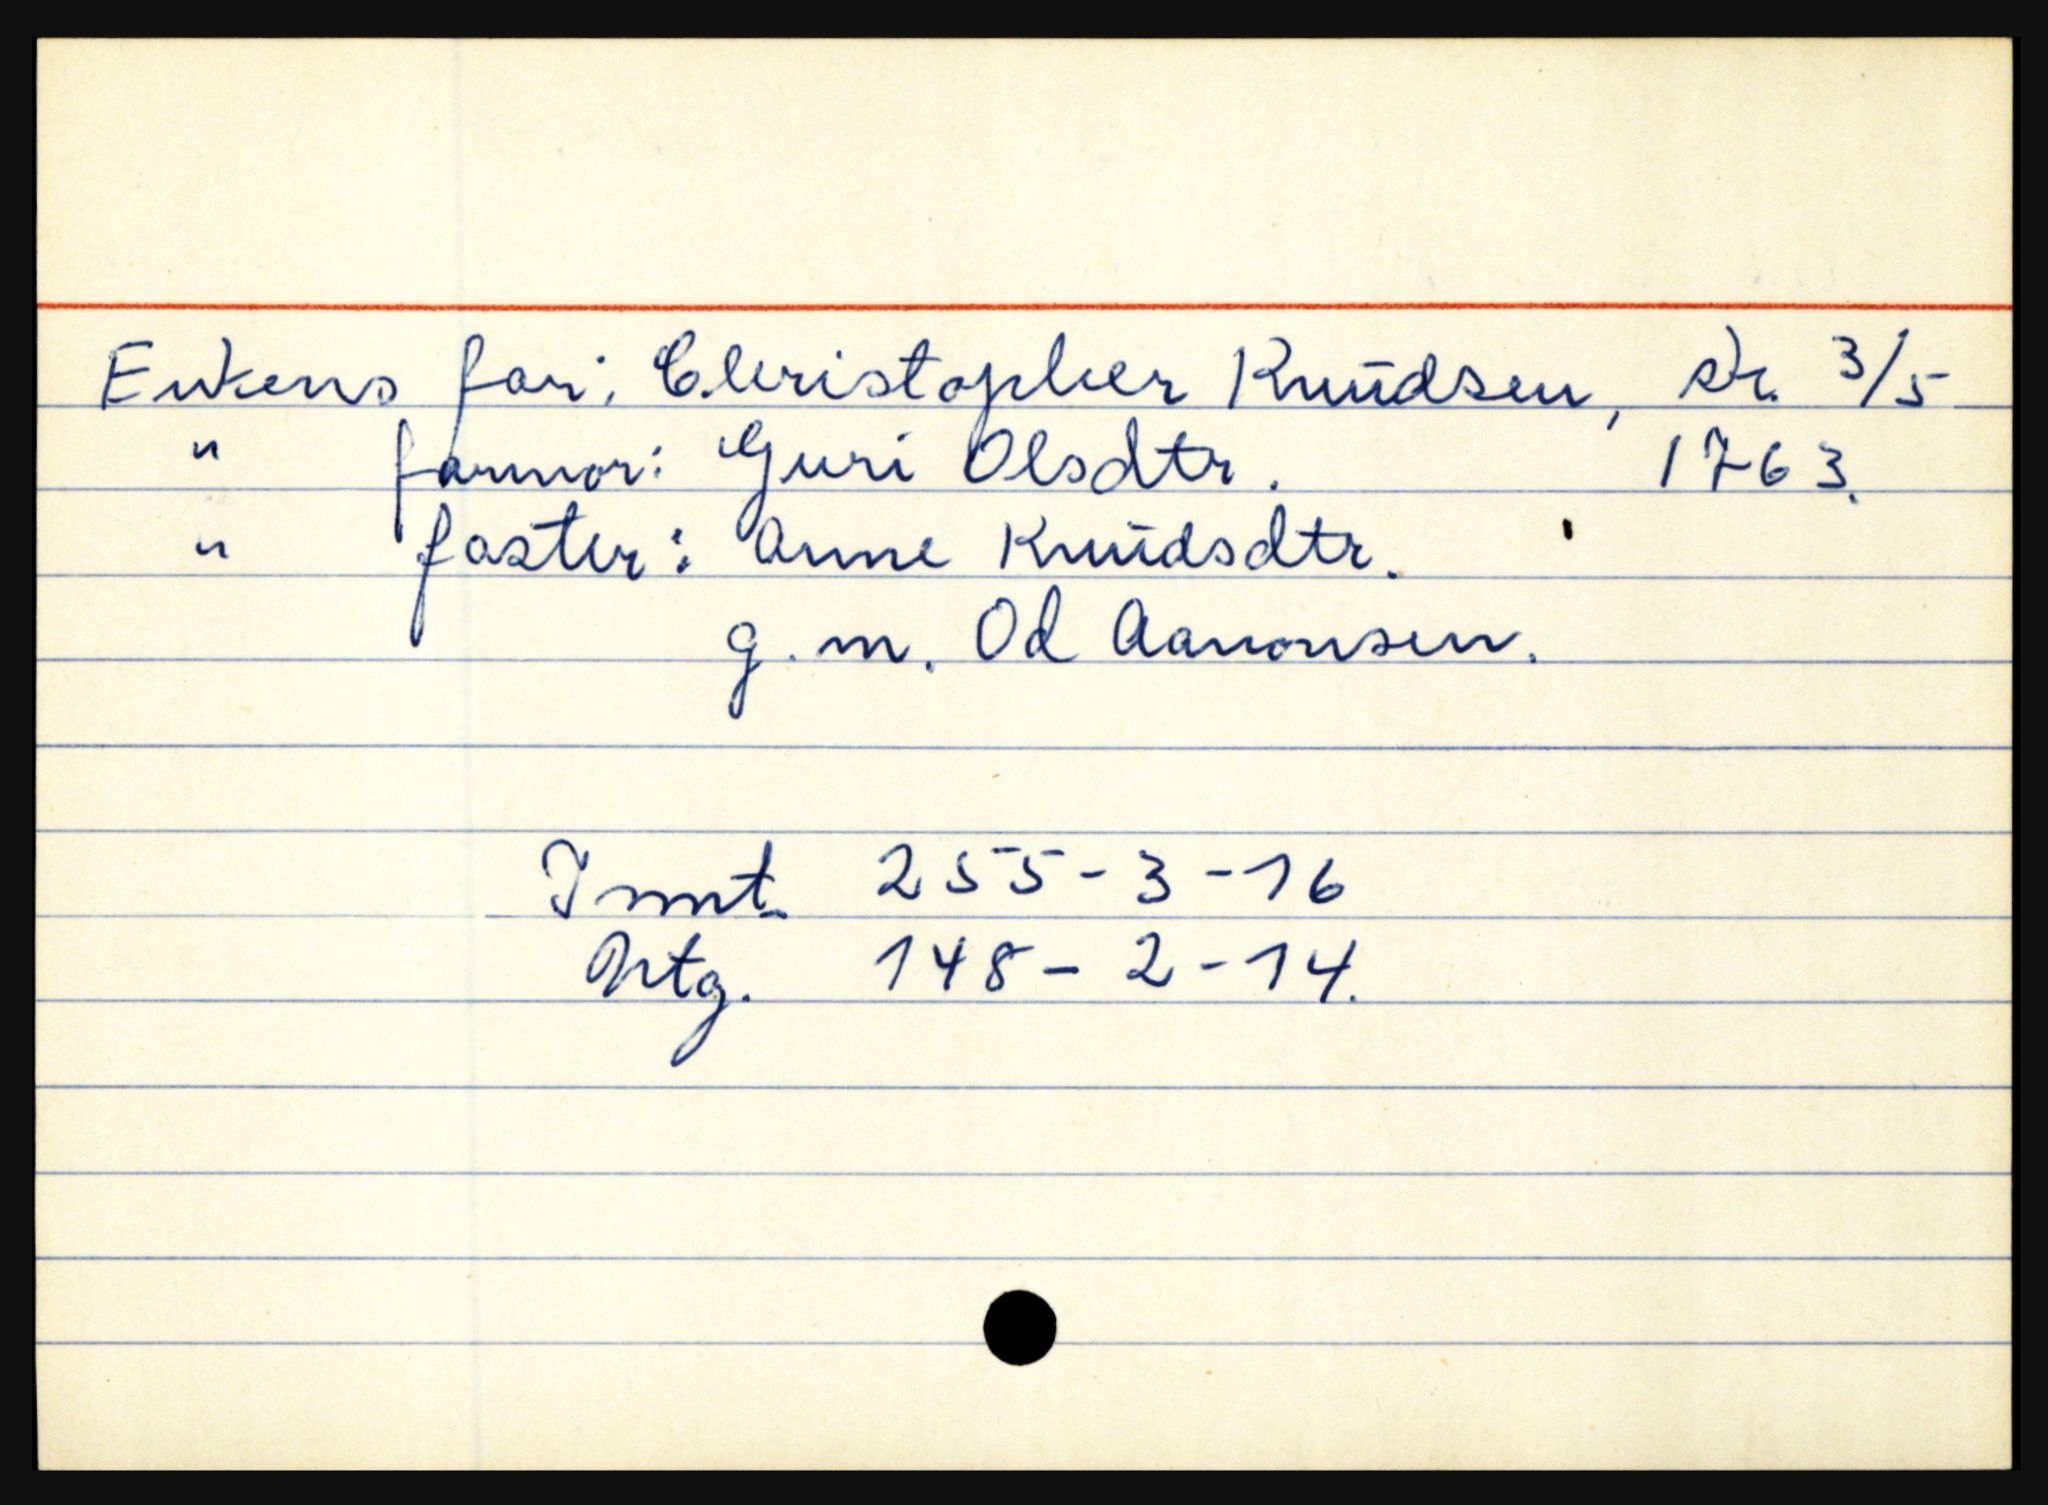 Enkens far: Christopher Knudsen, sk. 3/5
" farmor: Guri Olsdtr. 1763.
" faster: Anne Knudsdtr.
g. m. Od Aanonsen.
Innt. 255-3-16
Utg. 148-2-14.